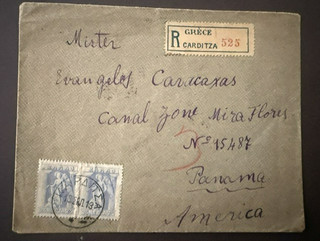 Mister
R
GRÈCE
CARDITZA
525
Evangelos Caracaxas
Canal Zone Mira Flores
Nº 15487
3
Panama
America